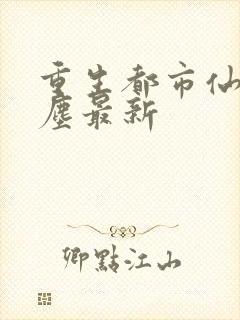 重生都市仙
塵最新
卿點江山